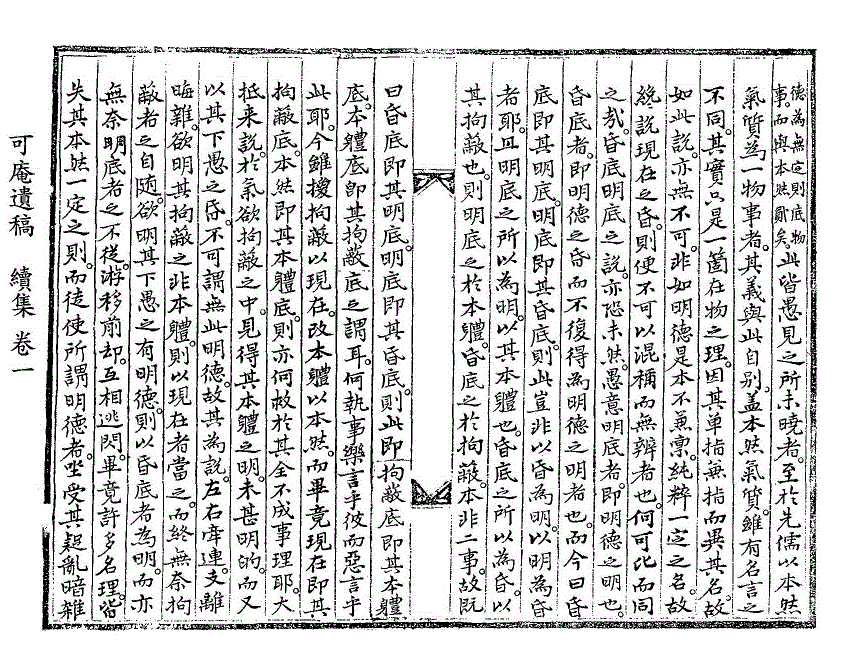 德爲無定則底物
事而與本然貳矣此皆愚見之所未曉者至於先儒以本然
氣質爲一物事者其義與此自别盖本然氣質雖有名言之
不同其實只是一箇在物之理因其單指兼指而異其名故
如此說亦無不可非如明德是本不兼稟純粹一定之名故
終說現在之昏則便不可以混稱而無辨者也何可比而同
之㢤昏底明底之說亦恐未然愚意明底者即明德之明也
昏底者即明德之昏而不復得爲明德之明者也而今曰昏
底即其明底明底即其昏底則此豈非以昏爲明以明爲昏
者耶且明底之所以爲明以其本體也昏底之所以爲昏以
其拘蔽也則明底之於本體昏底之於拘蔽本非二事故既
曰昏底即其明底明底即其昏底則此即拘蔽底即其本體
底本體底卽其拘蔽底之謂耳何執事樂言乎彼而惡言乎
此耶今雖擾拘蔽以現在改本體以本然而畢竟現在即其
拘蔽底本然即其本體底則亦何救於其全不成事理耶大
抵来說於氣欲拘蔽之中見得其本體之明未甚明的而又
以其下愚之昏不可謂無此明德故其爲說左右牽連支離
晦雜欲明其拘蔽之非本體則以現在者當之而終無奈拘
蔽者之自随欲明其下愚之有明德則以昏底者爲明而亦
無奈明底者之不從游移前却互相逃閃畢竟許多名理皆
失其本然一定之則而徒使所謂明德者坐受其疑亂暗雜
可庵遺稿　續集　卷一